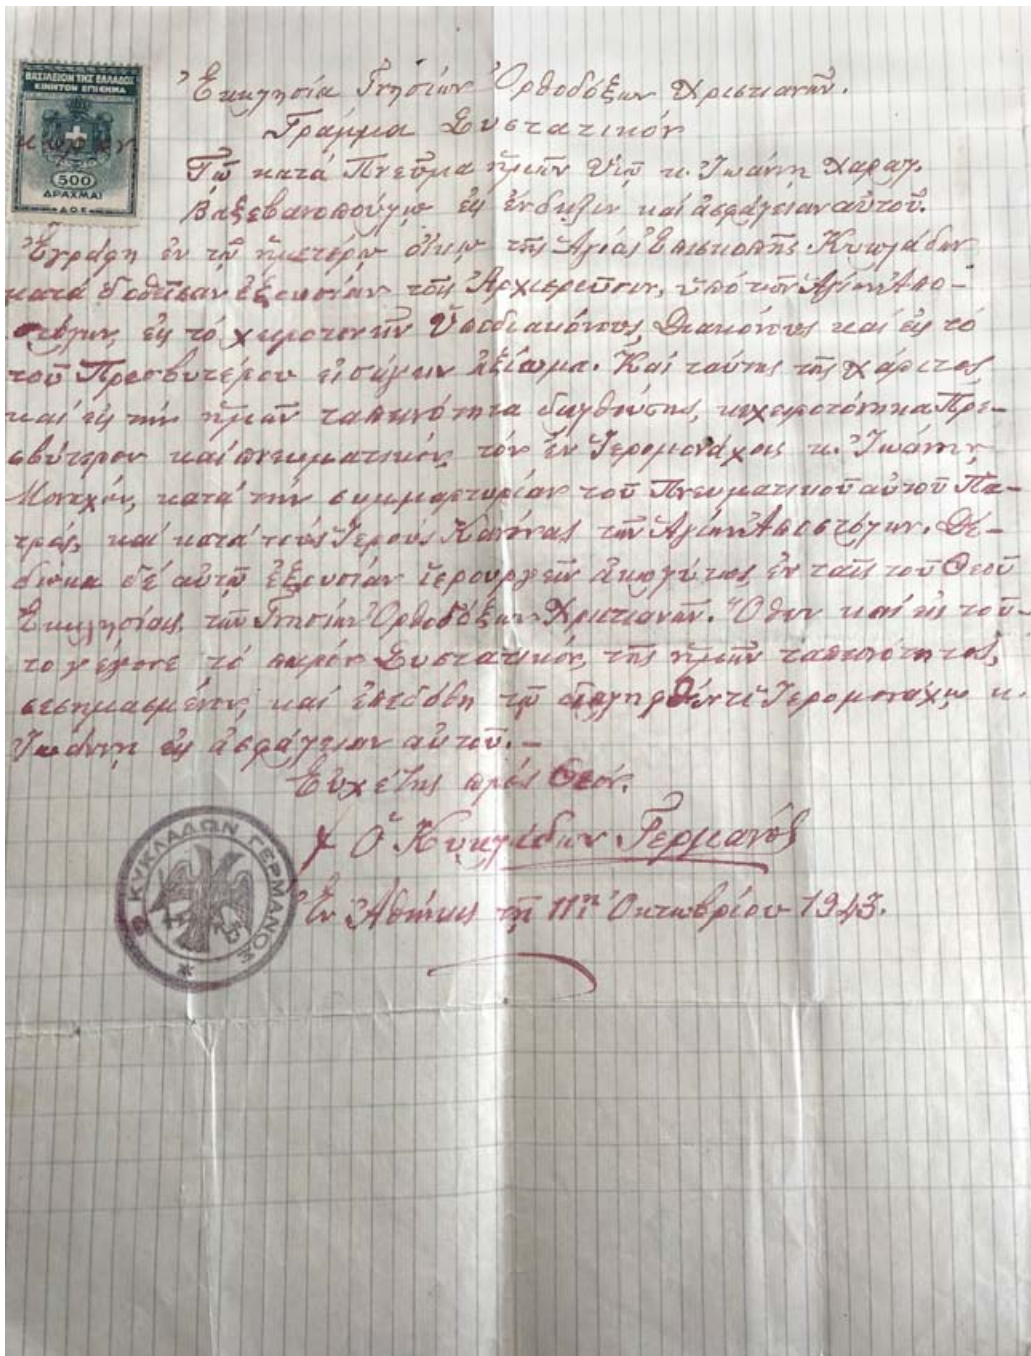 ΒΑΣΙΛΕΙΟΝ ΤΗΣ ΕΛΛΑΔΟΣ
ΚΙΝΗΤΟΝ ΕΠΙΣΗΜΑ
500
ΔΡΑΧΜΑΙ
Ἐκκλησία Γνησίων Ὀρθοδόξων Χριστιανῶν.
Γράμμα Συστατικόν
Τῷ κατά Πνεῦμα ἡμῶν Υἱῷ κ. Ἰωάννῃ Χαραλ.
Βαξεβανοπούλῳ εἰς ἔνδειξιν καί ἀσφάλειαν αὐτοῦ.
Ἐγράφη ἐν τῷ ἡμετέρῳ οἴκῳ τῆς Ἁγίας Ἐπισκοπῆς Κυκλάδων
κατά δοθεῖσαν ἐξουσίαν τοῖς Ἀρχιερεῦσιν, ὑπό τῶν Ἁγίων Ἀπο-
στόλων, εἰς τό χειροτονεῖν Ὑποδιακόνους, Διακόνους καί εἰς τό
τοῦ Πρεσβυτέρου εἰσάγειν ἀξίωμα. Καί ταύτης τῆς χάριτος
καί εἰς τήν ἡμῶν ταπεινότητα διελθούσης, κεχειροτόνηκα Πρε-
σβύτερον καί πνευματικόν, τόν ἐν Ἱερομονάχοις κ. Ἰωάννην
Μοναχόν, κατά τήν συμμαρτυρίαν τοῦ Πνευματικοῦ αὐτοῦ Πα-
τρός, καί κατά τούς Ἱερούς Κανόνας τῶν Ἁγίων Ἀποστόλων. Δέ-
δωκα δέ αὐτῷ ἐξουσίαν ἱερουργεῖν ἀκωλύτως ἐν ταῖς τοῦ Θεοῦ
Ἐκκλησίαις τῶν Γνησίων Ὀρθοδόξων Χριστιανῶν. Ὅθεν καί εἰς τοῦ-
το γέγονε τό παρόν Συστατικόν, τῆς ἡμῶν ταπεινότητος,
σεσημασμένως καί ἐπεδόθη τῷ διαληφθέντι Ἱερομονάχῳ κ.
Ἰωάννῃ εἰς ἀσφάλειαν αὐτοῦ.-
Εὐχέτης πρός Θεόν.
† Ὁ Κυκλάδων Γερμανός
Ἐν Ἀθήναις τῇ 11ῃ Ὀκτωβρίου 1943.
Ο ΚΥΚΛΑΔΩΝ ΓΕΡΜΑΝΟΣ